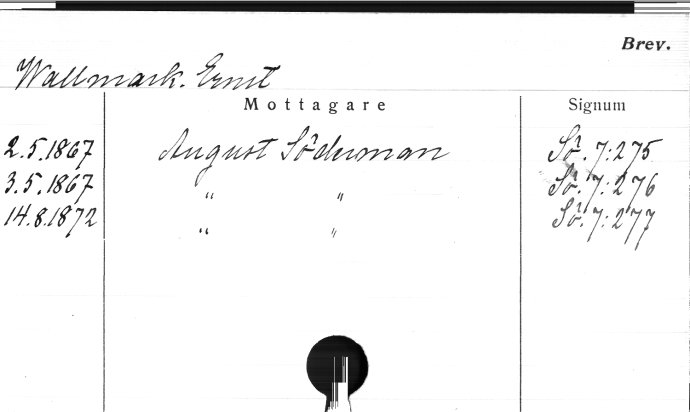 Brev.
Wallmark. Ernst
Mottagare Signum
2.5.1867 August Söderman Sö. 7:275
3.5.1867 " " Sö. 7:276
14.8.1872 " " Sö. 7:277